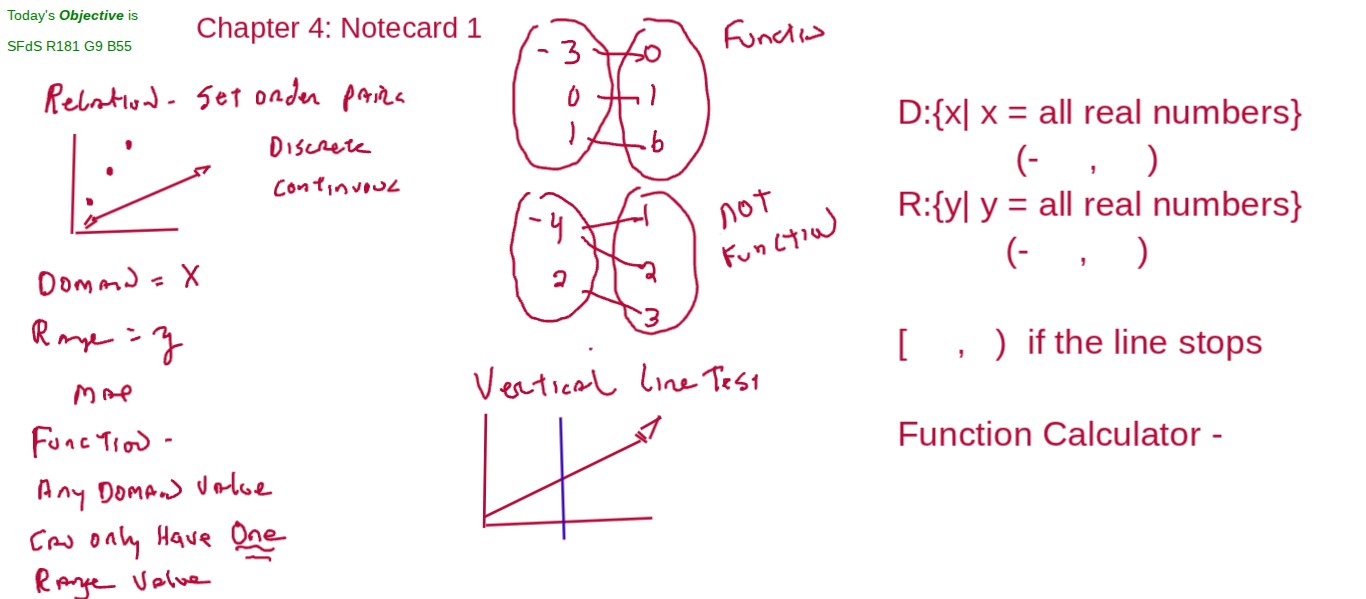 Today's Objective is
SFdS R181 G9 B55
Chapter 4: Notecard 1
Relation - Set order pairs
Discrete
Continuous
Domain = X
Range = y
Map
Function -
Any Domain Value
Can only Have One
Range Value
-3 0
0 1
1 6
Function
-4 1
2 2
3
Not
Function
Vertical Line Test
D:{x| x = all real numbers}
(- , )
R:{y| y = all real numbers}
(- , )
[ , ) if the line stops
Function Calculator -